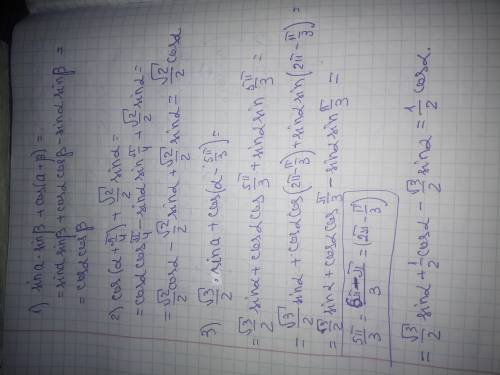 1) sina·sinβ + cos(a+β) =
= sinα sinβ + cosα cosβ - sinα sinβ =
= cosα cosβ
2) cos(α + π/4) + √2/2 sinα =
= cosα cos π/4 - sinα sin π/4 + √2/2 sinα =
= √2/2 cosα - √2/2 sinα + √2/2 sinα = √2/2 cosα
3) √3/2 · sina + cos(α - 5π/3) =
= √3/2 sinα + cosα cos 5π/3 + sinα sin 5π/3 =
= √3/2 sinα + cosα cos(2π - π/3) + sinα sin(2π - π/3) =
= √3/2 sinα + cosα cos π/3 - sinα sin π/3 =
5π/3 = 6π-π/3 = (2π - π/3)
= √3/2 sinα + 1/2 cosα - √3/2 sinα = 1/2 cosα.